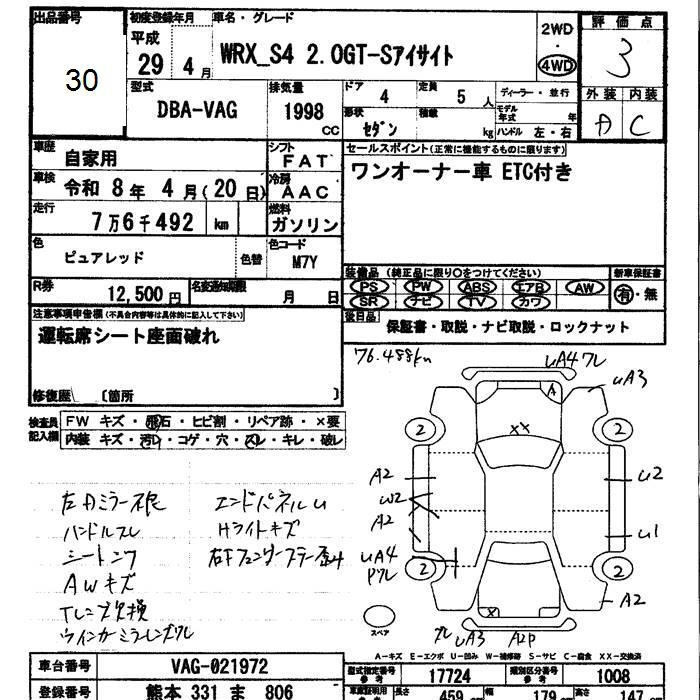 出品番号 初度登録年月 車名・グレード 2WD 評価点
30 平成 29 4月 WRX_S4 2.0GT-Sアイサイト ・ 4WD 3
型式 排気量 ドア 4 定員 5人 ディーラー・並行 外装 内装
DBA-VAG 1998 CC 形状 セダン 積載 kg モデル年式 年 ハンドル 左・右 A C
車歴 自家用 シフト FAT セールスポイント(正常に機能するものに限ります)
車検 令和 8年 4月(20日) 冷房 AAC ワンオーナー車 ETC付き
走行 7万6千492 km 燃料 ガソリン
色 ピュアレッド 色替 色コード M7Y
装備品(純正品に限り○をつけてください) 新車保証書
R券 12,500円 名変通知期限 月 日 PS PW ABS エアB AW 有・無
SR ナビ TV カワ
注意事項申告欄(不具合内容等は具体的に記入して下さい) 後日品 保証書・取説・ナビ取説・ロックナット
運転席シート座面破れ
修復歴 〔箇所 〕
76.488km
検査員記入欄 FW キズ・飛石・ヒビ割・リペア跡・×要
内装 キズ・汚レ・コゲ・穴・スレ・キレ・破レ
uA4 ワレ
uA3
A
2 2
XX
A2 u2
W2
A2 u1
uA4
2 2
A2
X
uA3 A2P
スペア
ハンドルスレ Hライトキズ
AWキズ
A-キズ E-エクボ U-凹み W-補修跡 S-サビ C-腐食 XX-交換済
車台番号 VAG-021972 型式指定番号 参考 17724 類別区分番号 参考 1008
登録番号 熊本 331 ま 806 長さ 459 幅 179 高さ 147